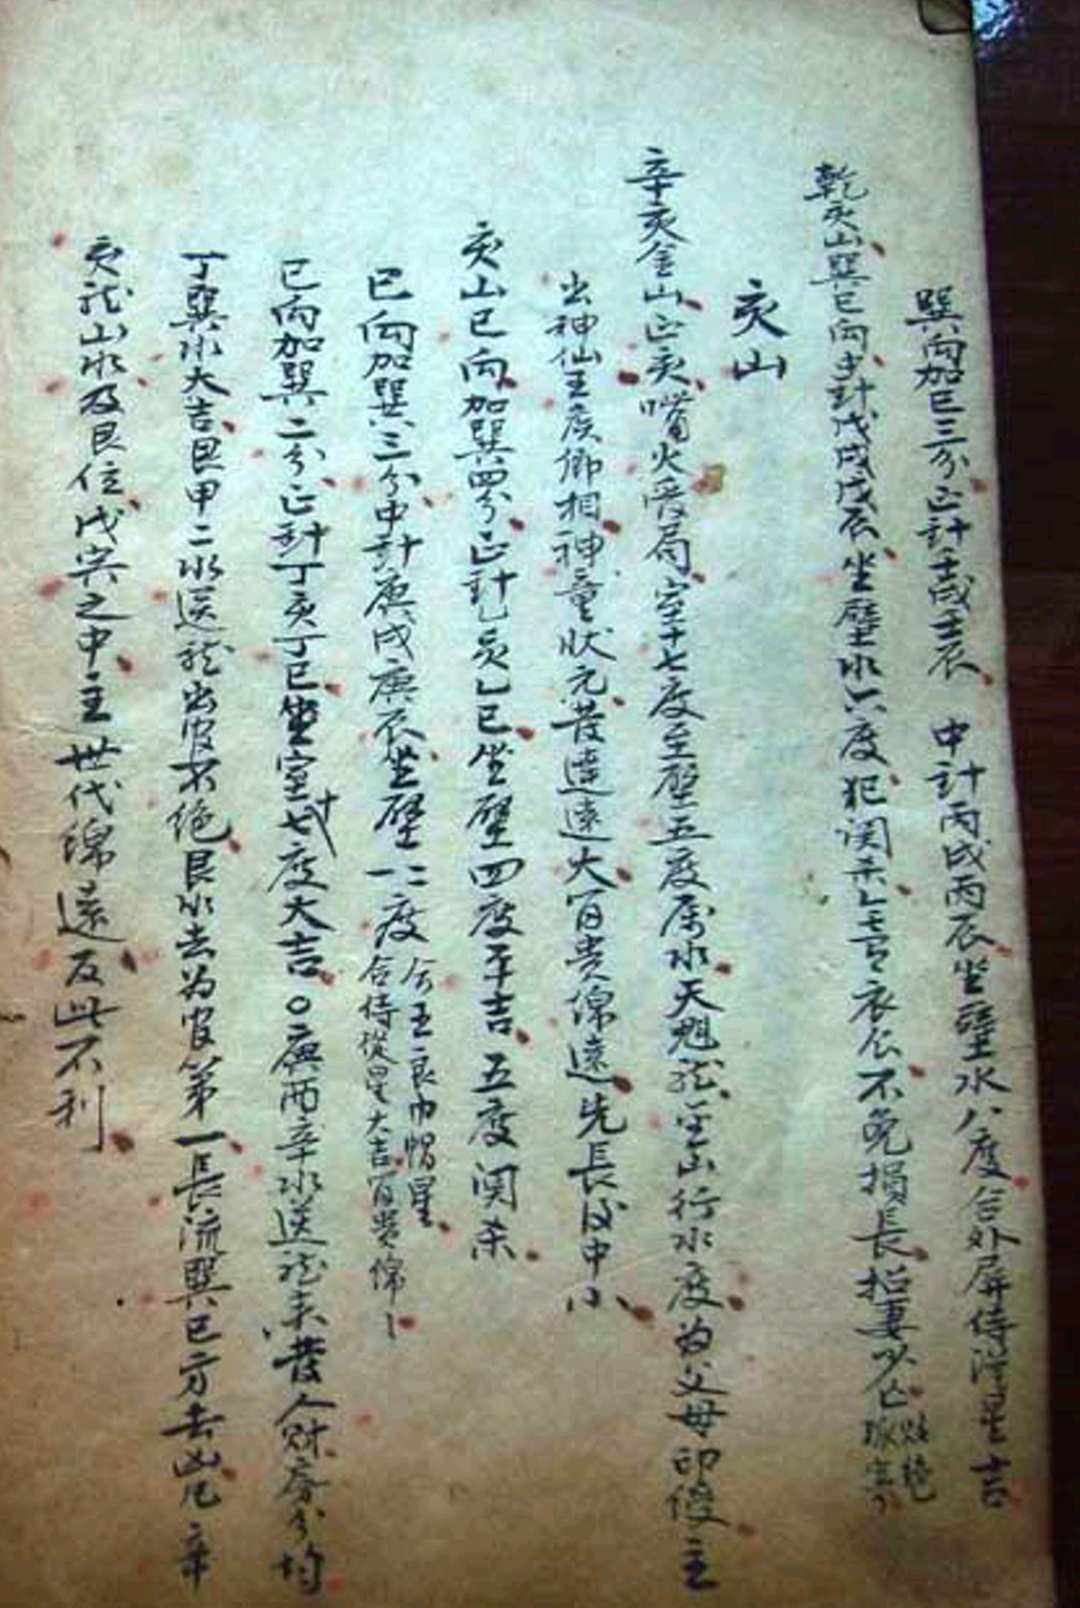 巽向加巳三分正針壬戌壬辰 中針丙戌丙辰坐壁水八度合外屏侍 星吉
乾亥山巽巳向 針戊戌戊辰坐壁水六度犯関杀 衣 不免損長 妻少亡 敗絕
亥山
辛亥金山正亥 火受局室十七度至壁五度属水天魁龙坐山行水度為父母印 主
出神仙王侯卿相神童狀元發達遠大百 綿遠先長後中小
亥山巳向加巽四分正針乙亥乙巳坐壁四度平吉五度関杀
巳向加巽三分中針庚戌庚辰坐壁一二度 合王良巾帽星
合侍從星大吉百 綿
巳向加巽二分正針丁亥丁巳坐室 度大吉〇庚酉辛水送龙来發人财房分均
丁巽水大吉艮甲二水送龙出官不绝艮水去为官第一長流巽巳方去凶凡辛
亥龙山水及艮位戊 之中主世代綿遠反此不利